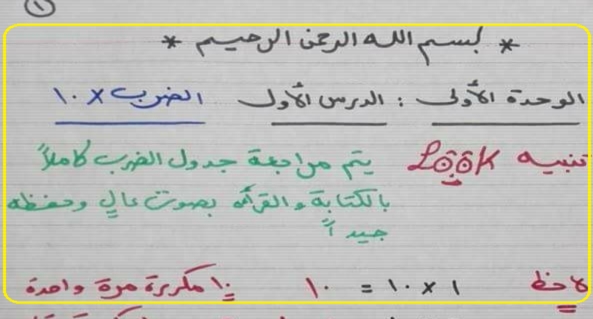 ١
* بسم الله الرحمن الرحيم *
الوحدة الأولى : الدرس الأول الضرب × ١٠
تنبيه Look يتم مراجعة جدول الضرب كاملاً
بالكتابة والقرأه بصوت عالٍ وحفظه
جيداً
لاحظ ١ × ١٠ = ١٠ ١٠ مكررة مرة واحدة